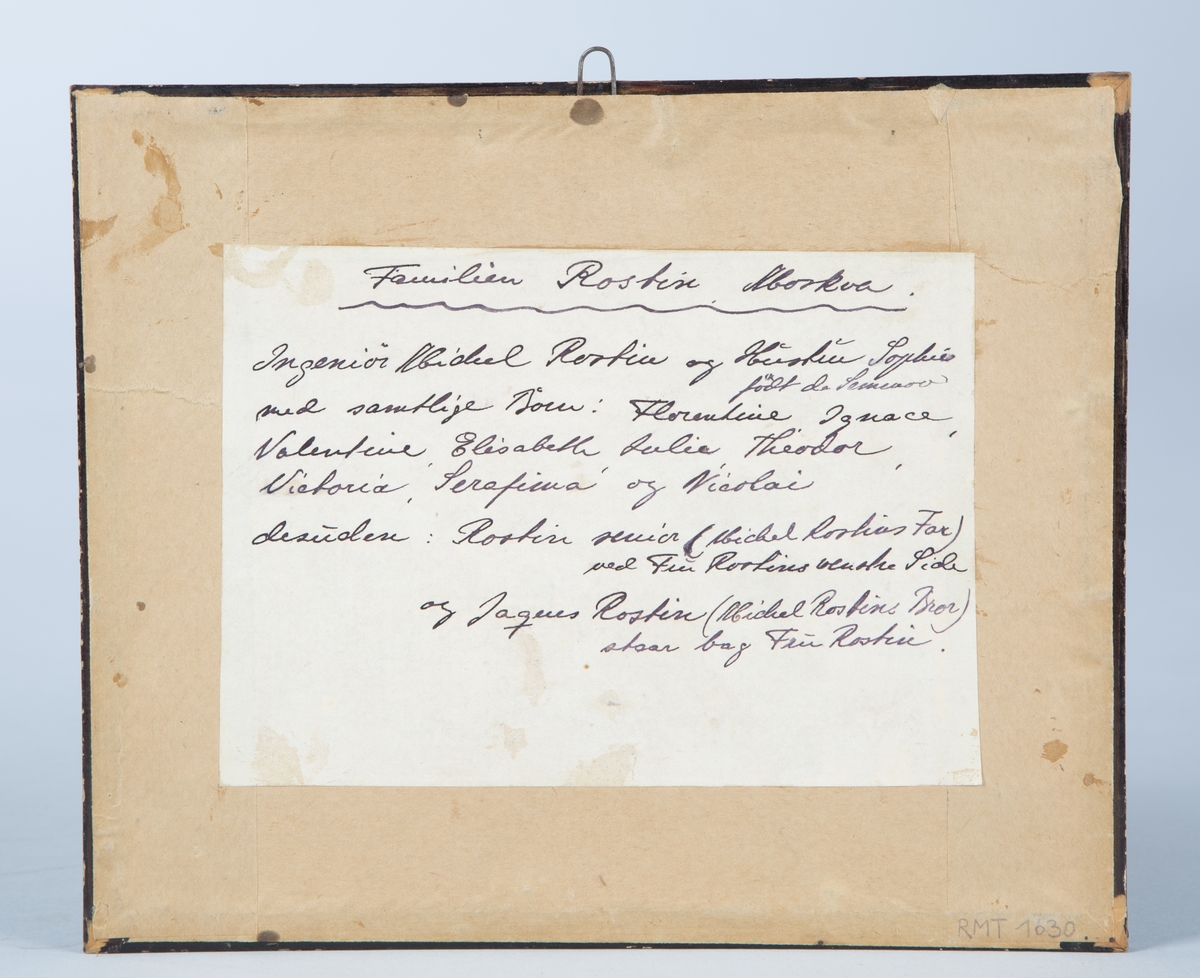 Familien Rostin, Moskva.
Ingeniör Michel Rostin og Hustru Sophie
födt de Semenov
med samtlige Börn: Florentine, Ignace,
Valentine, Elisabeth, Julie, Theodor,
Victoria, Serafima og Nicolai
desuden: Rostin senior (Michel Rostins Far)
ved Fru Rostins venstre Side
og Jaques Rostin (Michel Rostins Bror)
staar bag Fru Rostin.
RMT 1630